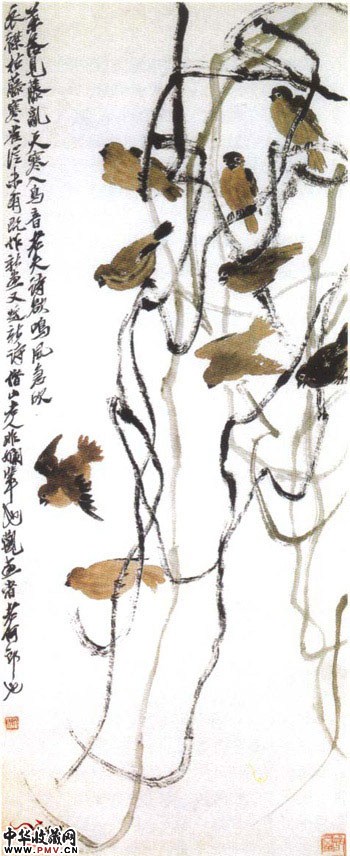 葉落見藤亂天寒入鳥音老夫詩欲鳴風急吹
衣襟枯藤寒雀從未有既作新畫又作新詩借山老人非嬾輩也觀畫者老何郎也
中华收藏网
www.PMV.CN